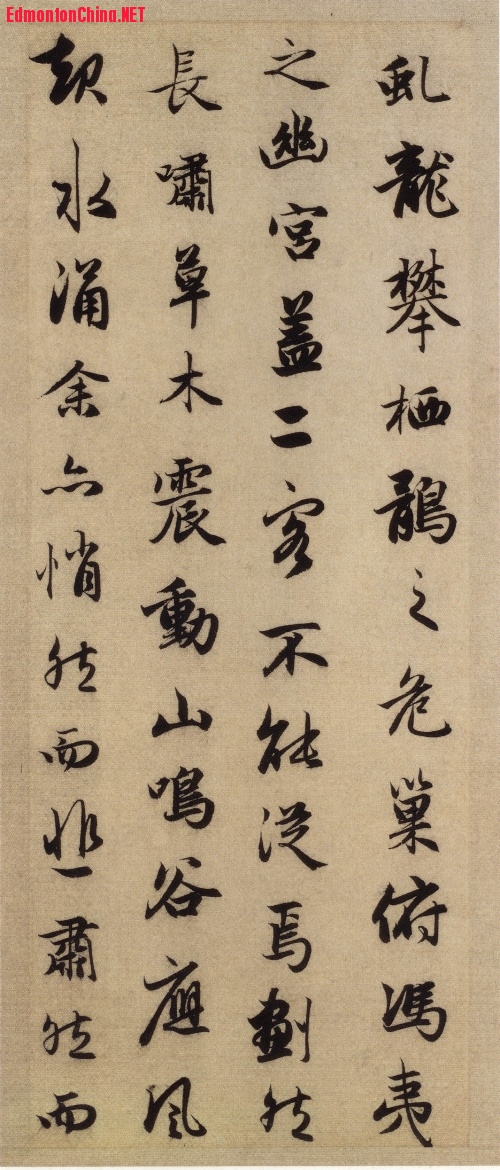 EdmontonChina.NET
虬龍攀栖鶻之危巢俯馮夷
之幽宮盖二客不能從焉劃然
長嘯草木震動山鳴谷應風
起水涌余亦悄然而悲肅然而